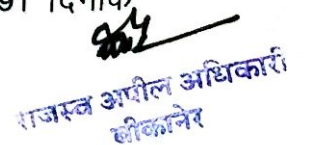 दिनांक
राजस्व अपील अधिकारी
बीकानेर